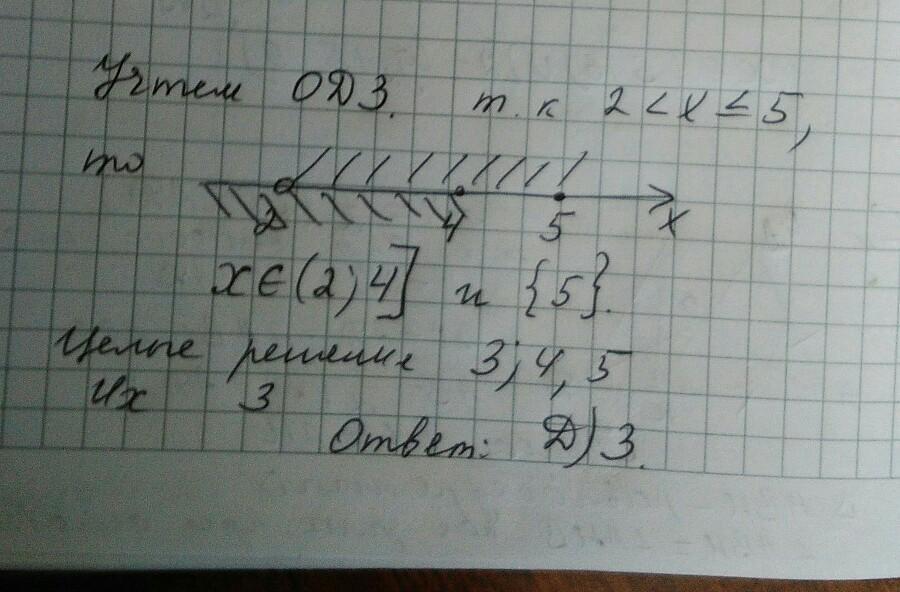 Учтем ОДЗ. т.к 2 < x ≤ 5,
то
2 4 5 x
x ∈ (2; 4] и {5}.
Целые решение 3; 4, 5
Их 3
Ответ: Д) 3.